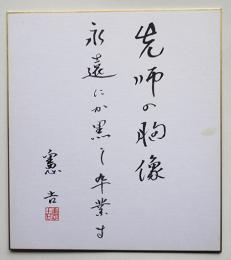 先師の胸像
永遠にか黒し卒業す
憲吉